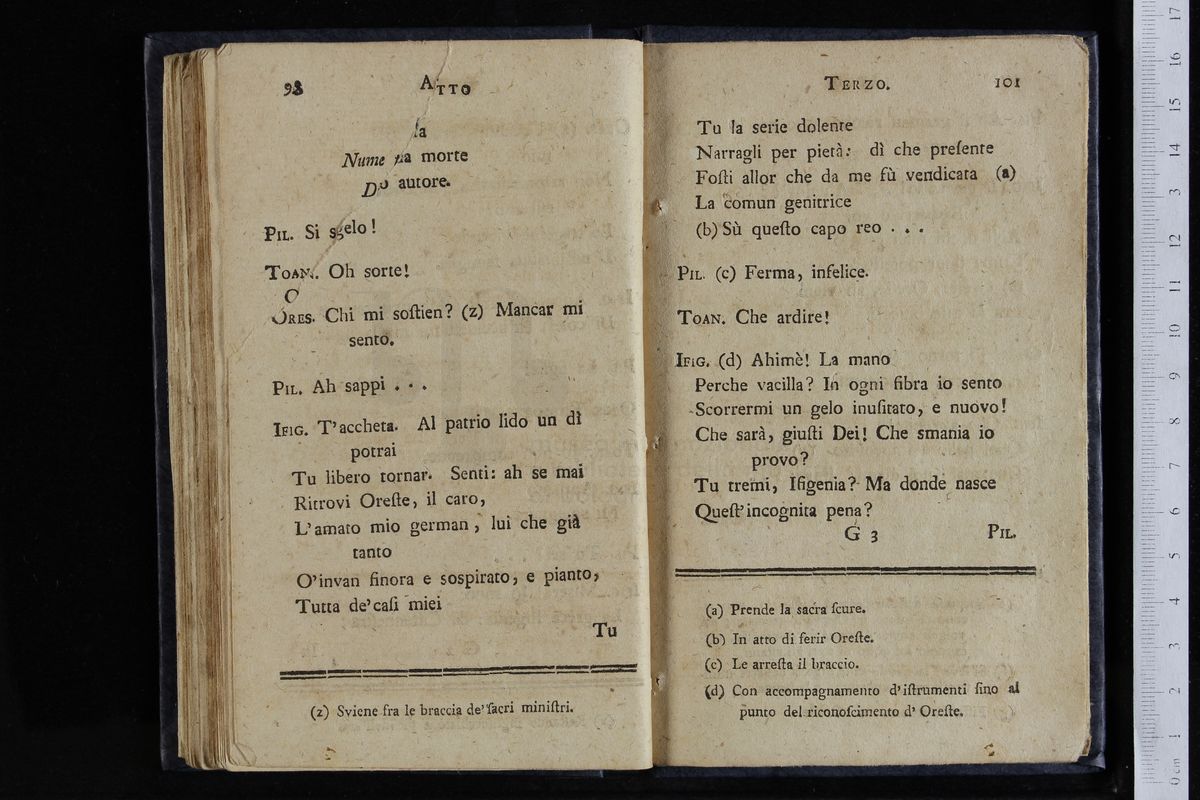 98 ATTO
la
Nume na morte
Do autore.
PIL. Si sgelo!
TOAN. Oh sorte!
ORES. Chi mi soſtien? (z) Mancar mi
sento.
PIL. Ah sappi . . .
IFIG. T'accheta. Al patrio lido un dì
potrai
Tu libero tornar. Senti: ah se mai
Ritrovi Oreſte, il caro,
L'amato mio german, lui che già
tanto
O'invan finora e sospirato, e pianto,
Tutta de'caſi miei
Tu
(z) Sviene fra le braccia de'ſacri miniſtri.
TERZO. 101
Tu la serie dolente
Narragli per pietà: dì che preſente
Foſti allor che da me fù vendicata (a)
La comun genitrice
(b) Sù queſto capo reo . . .
PIL. (c) Ferma, infelice.
TOAN. Che ardire!
IFIG. (d) Ahimè! La mano
Perche vacilla? In ogni fibra io sento
Scorrermi un gelo inuſitato, e nuovo!
Che sarà, giuſti Dei! Che smania io
provo?
Tu tremi, Ifigenia? Ma donde nasce
Queſt'incognita pena?
G 3 PIL.
(a) Prende la sacra ſcure.
(b) In atto di ferir Oreſte.
(c) Le arreſta il braccio.
(d) Con accompagnamento d'iſtrumenti ſino al
punto del riconoſcimento d' Oreſte.
17
16
15
14
13
12
11
10
9
8
7
6
5
4
3
2
1
0 cm